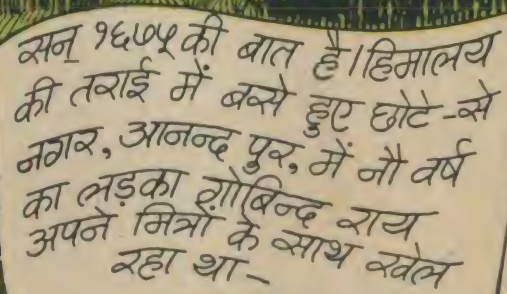 सन् १६७५ की बात है। हिमालय
की तराई में बसे हुए छोटे-से
नगर, आनन्द पुर, में नौ वर्ष
का लड़का गोबिन्द राय
अपने मित्रों के साथ खेल
रहा था-